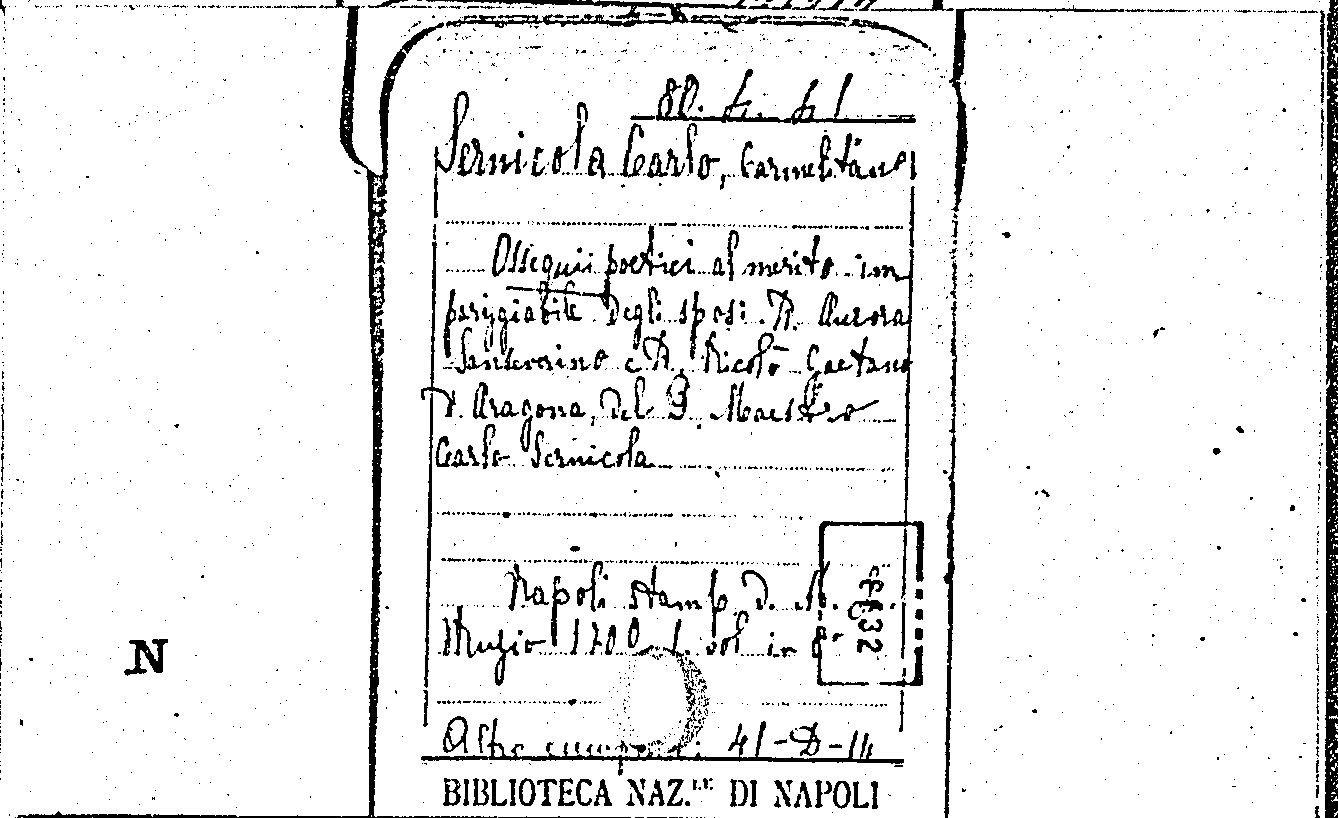 Sernicola Carlo, Carmelitano
Ossequii poetici al merito im
pariggiabile degli sposi D. Aurora
Sanseverino e D. Nicolò Gaetano
d'Aragona, del P. Maestro
Carlo Sernicola
Napoli stamp. d. M.
Muzio 1700 1. vol in 8°
Altro 41-D-14
BIBLIOTECA NAZ.LE DI NAPOLI
N